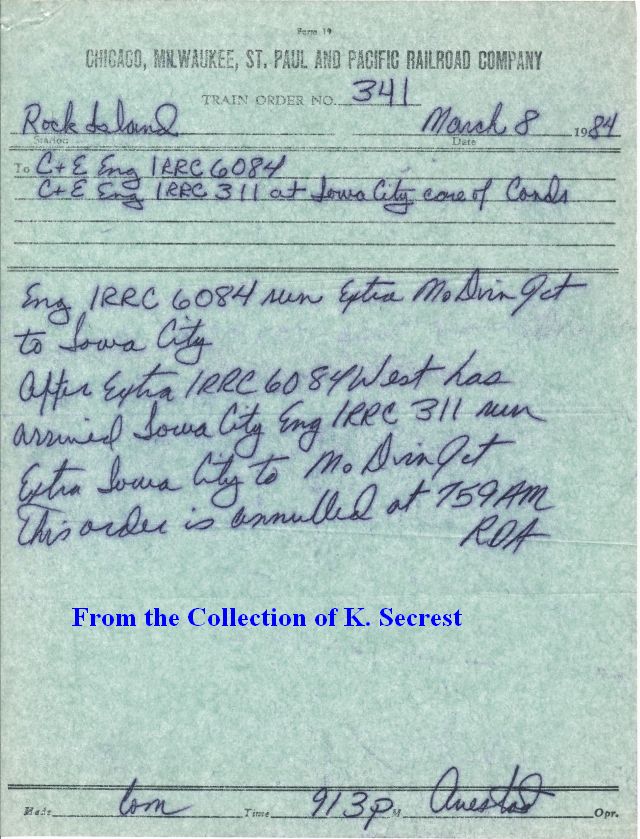 Form 19
CHICAGO, MILWAUKEE, ST. PAUL AND PACIFIC RAILROAD COMPANY
TRAIN ORDER NO. 341
Rock Island March 8 1984
Station Date
To C+E Eng IRRC 6084
C+E Eng IRRC 311 at Iowa City care of Conds
Eng IRRC 6084 run Extra Mo Divn Jct
to Iowa City
After Extra IRRC 6084 West has
arrived Iowa City Eng IRRC 311 run
Extra Iowa City to Mo Divn Jct
This order is annulled at 759 AM
RDA
From the Collection of K. Secrest
Made com Time 913p M Opr.